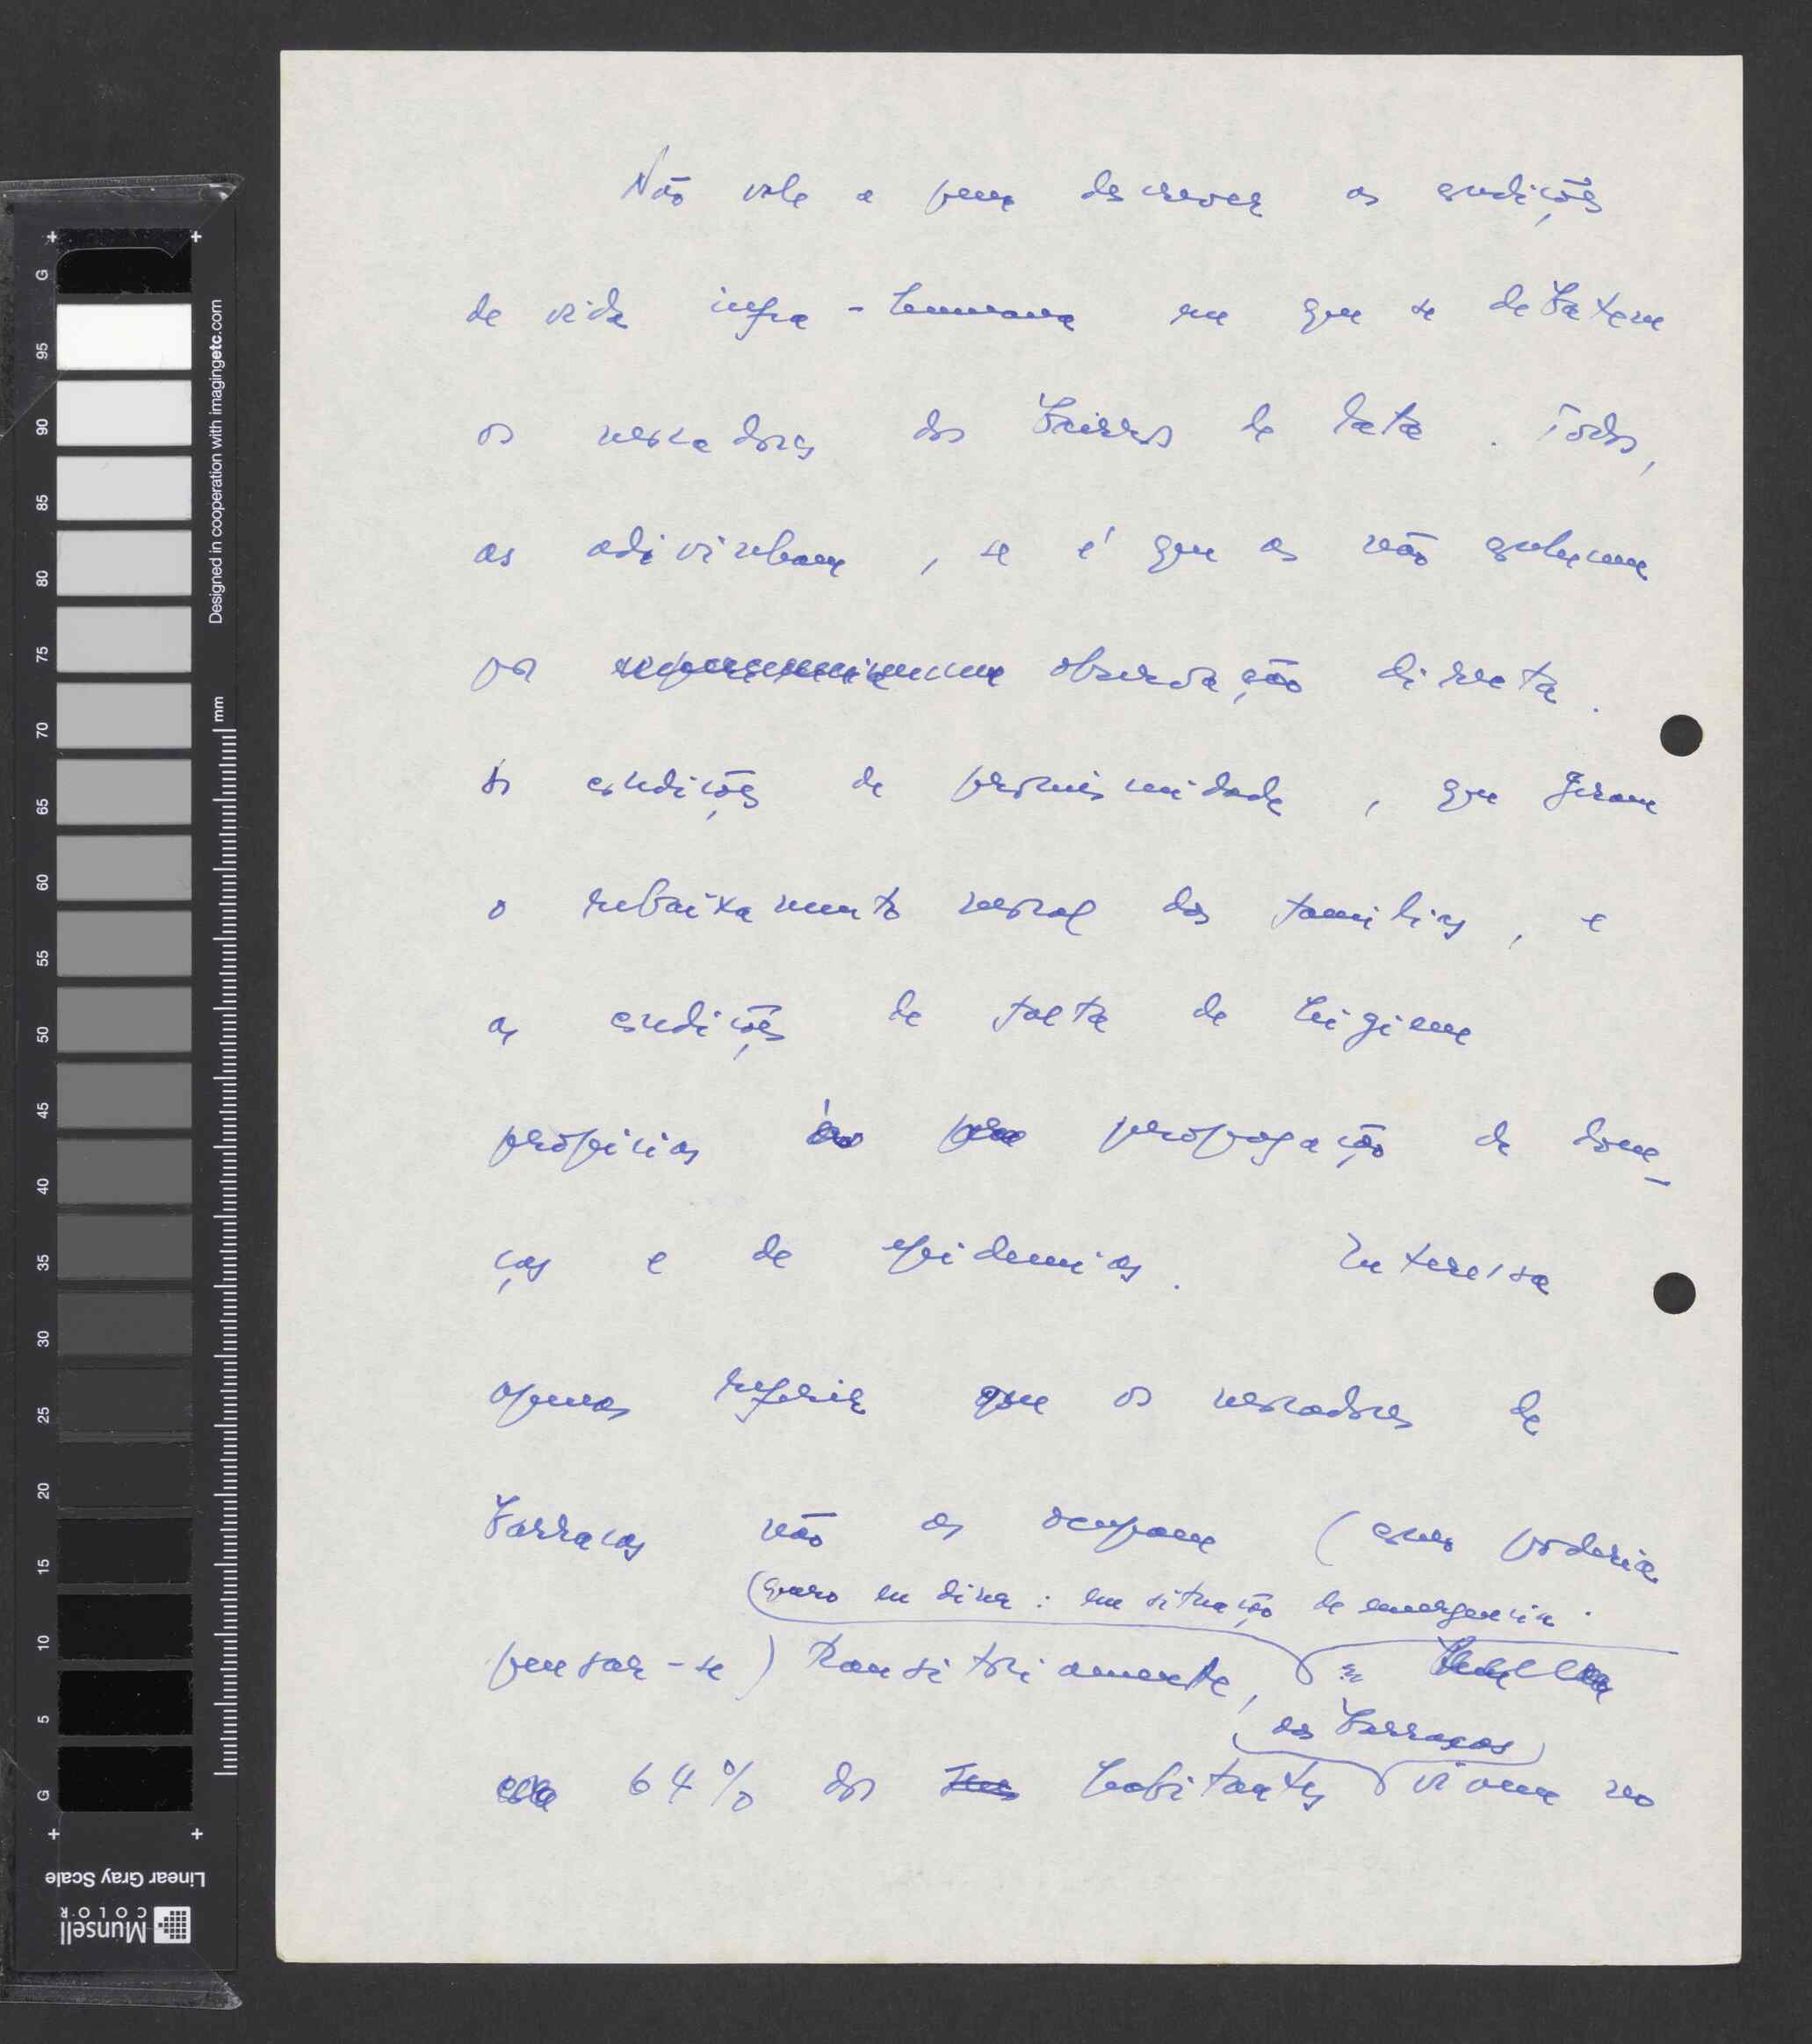 Não vale a pena descrever as condições
de vida infra-humana em que se debatem
os moradores dos bairros de lata. Todos,
as adivinham, se é que as não conhecem
por observação directa.
As condições de promiscuidade, que geram
o rebaixamento moral das famílias, e
as condições de falta de higiene
propícias à propagação de doen-
ças e de epidemias. Interessa
apenas referir que os moradores de
barracas não as ocupam (como poderia
(quero eu dizer: em situação de emergencia.
pensar-se) transitoriamente,
das barracas
64% dos habitantes vivem no
G
95
90
85
80
75
70
65
60
55
50
45
40
35
30
25
20
15
10
5
G
Designed in cooperation with imagingetc.com
mm
Linear Gray Scale
Munsell
COLOR